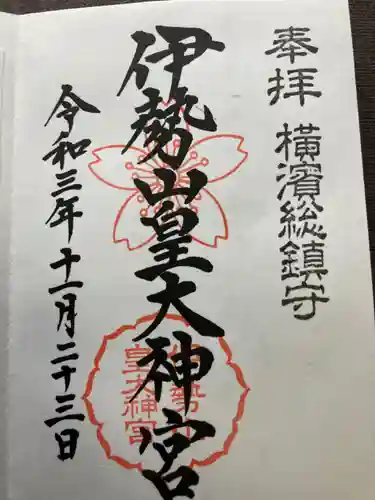 奉拝 横濱総鎮守
伊勢山皇大神宮
伊勢山
皇大神宮
令和三年十一月二十三日